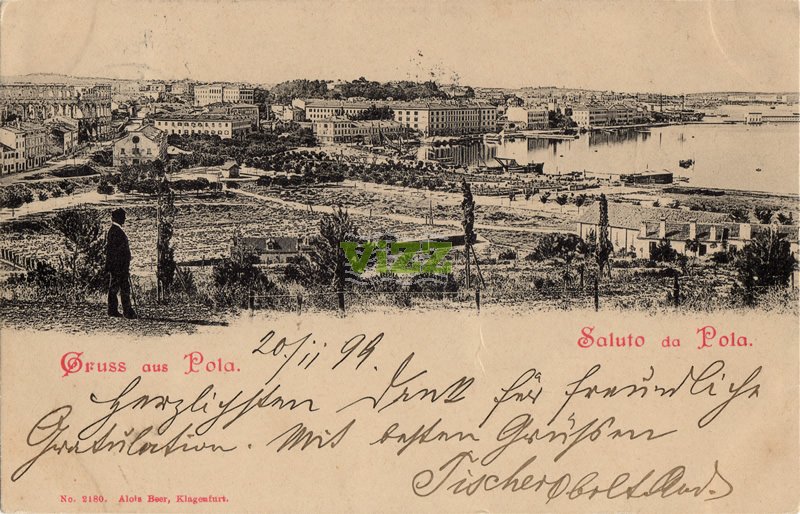 VIZZ
Gruss aus Pola.
Saluto da Pola.
20/II 99
Herzlichsten Dank für freundliche
Gratulation. Mit besten Grüssen
Fischer
No. 2180. Alois Beer, Klagenfurt.